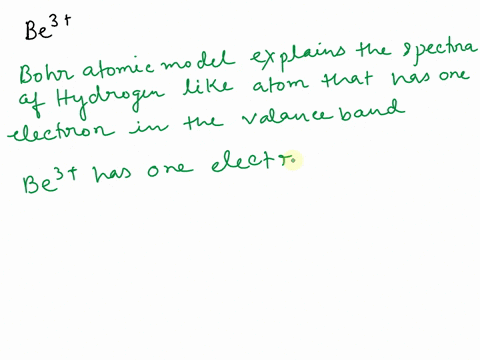 Be3+
Bohr atomic model explains the spectra
of Hydrogen like atom that has one
electron in the valance band
Be3+ has one electr